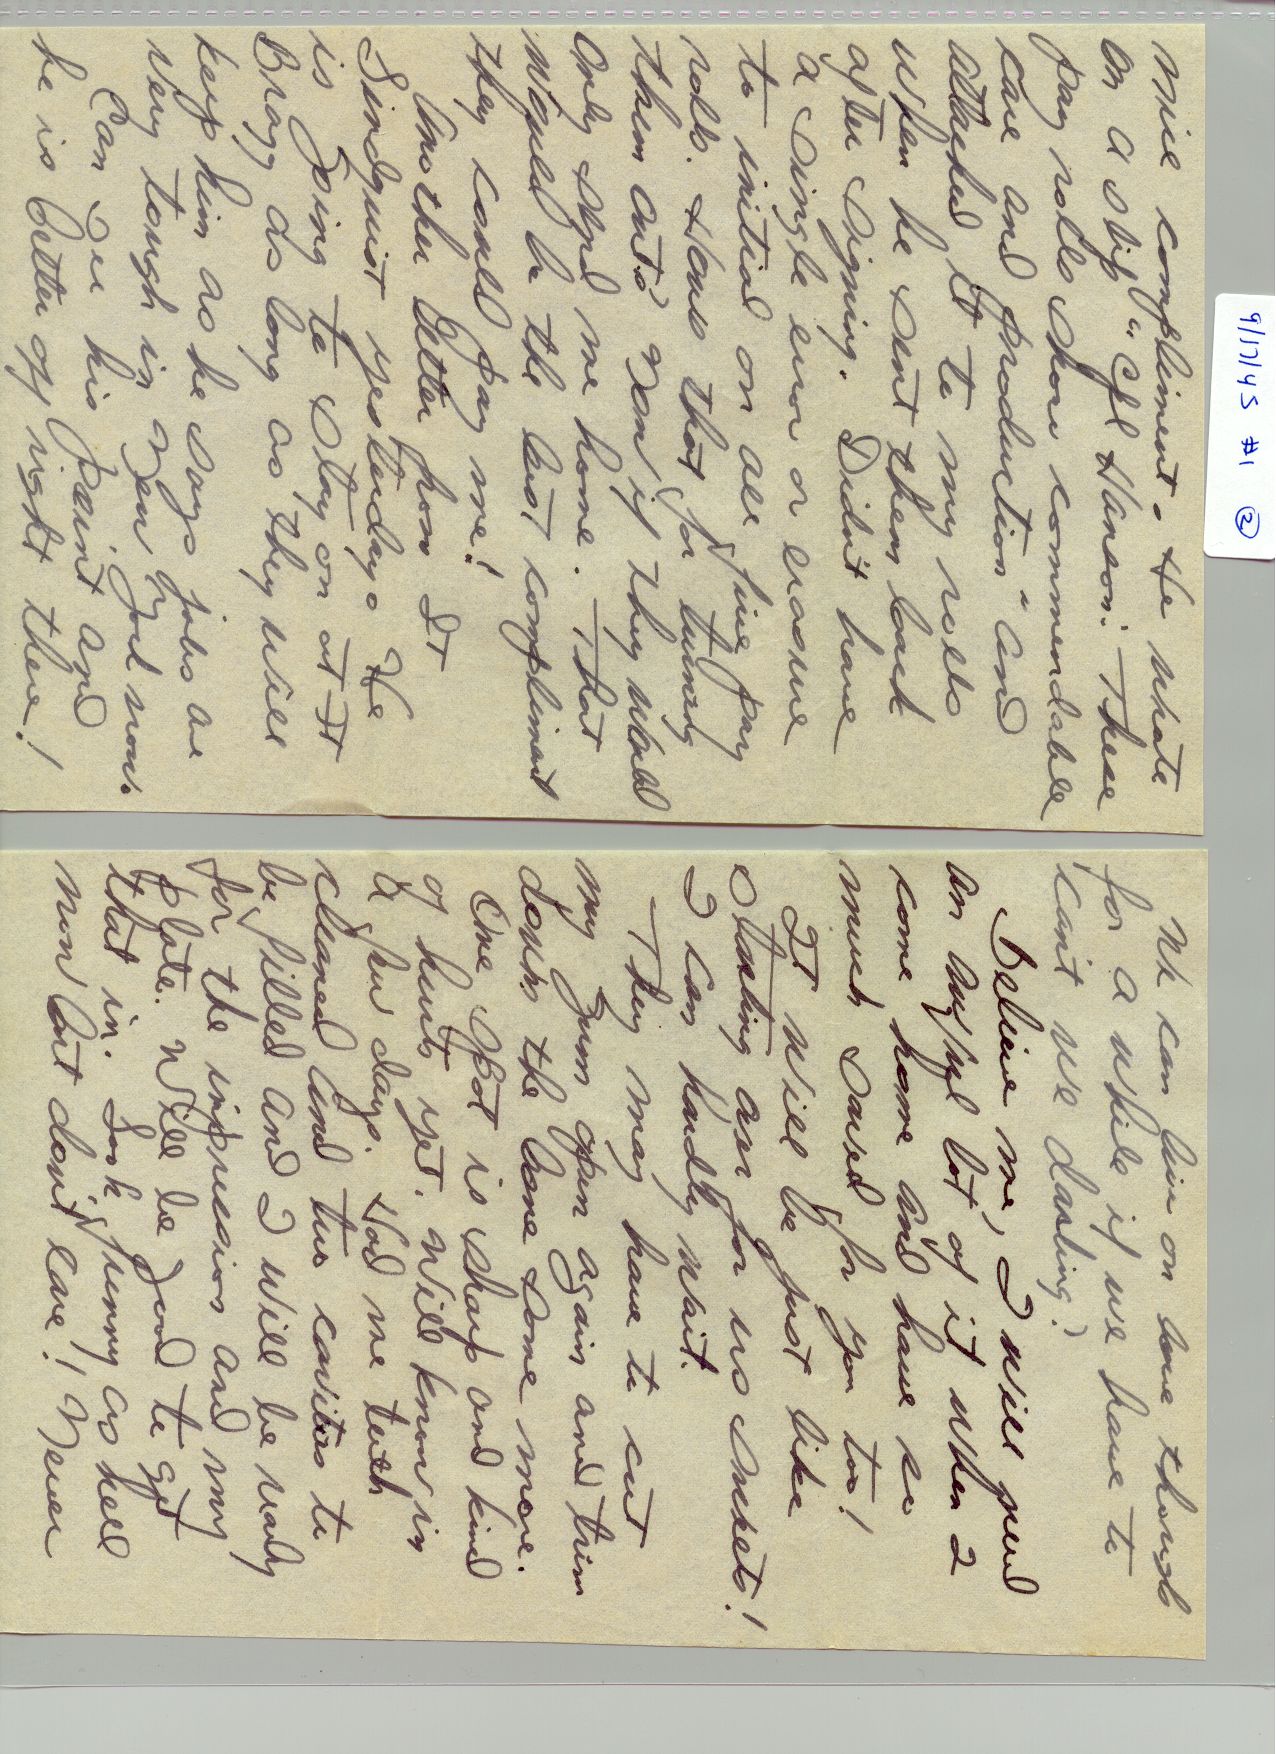 9/17/45 #1 ②
nice compliment. He wrote
on a slip "Cpl Hanson: These
pay rolls show commendable
care and production" and
attached it to my rolls
when he sent them back
after signing. Didn't have
a single error or erasure
to initial on all five pay
rolls. Hows that for turning
them out? Son if they would
only send me home. That
would be the best compliment
they could pay me!
Another letter from Lt
Lindquist yesterday. He
is going to stay on at Ft
Bragg as long as they will
keep him as he says jobs are
very tough in New York now.
Can see his point and
he is better off right there!
We can live on love though
for a while if we have to
can't we darling?
Believe me, I will need
an awful lot of it when I
come home and have so
much saved for you too!
It will be just like
starting over for us sweets!
I can hardly wait.
They may have to cut
my gum open again and trim
down the bone some more.
One spot is sharp and kind
of hurts yet. Will know in
a few days. Had me teeth
cleaned and two cavities to
be filled and I will be ready
for the impression and my
plate. Will be good to get
that in. Look funny as hell
now but don't care! Never